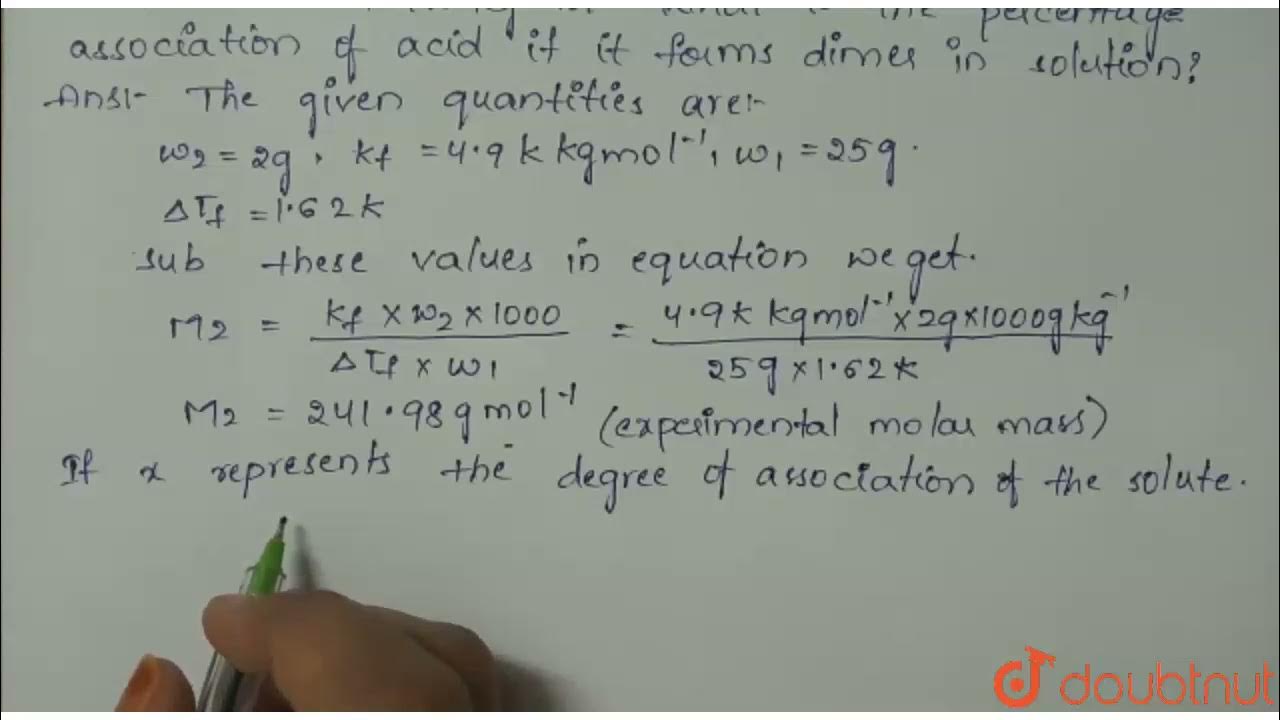 the percentage
association of acid if it forms dimer in solution?
Ans:- The given quantities are:-
w2 = 2g, kf = 4.9 k kg mol⁻¹, w1 = 25g.
ΔTf = 1.62 k
sub these values in equation we get.
M2 = kf × w2 × 1000 / ΔTf × w1 = 4.9k kg mol⁻¹ × 2g × 1000g kg⁻¹ / 25g × 1.62k
M2 = 241.98 g mol⁻¹ (experimental molar mass)
If x represents the degree of association of the solute.
doubtnut